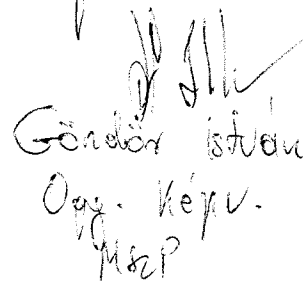 Göndör István
Ogy. Képv.
MSZP